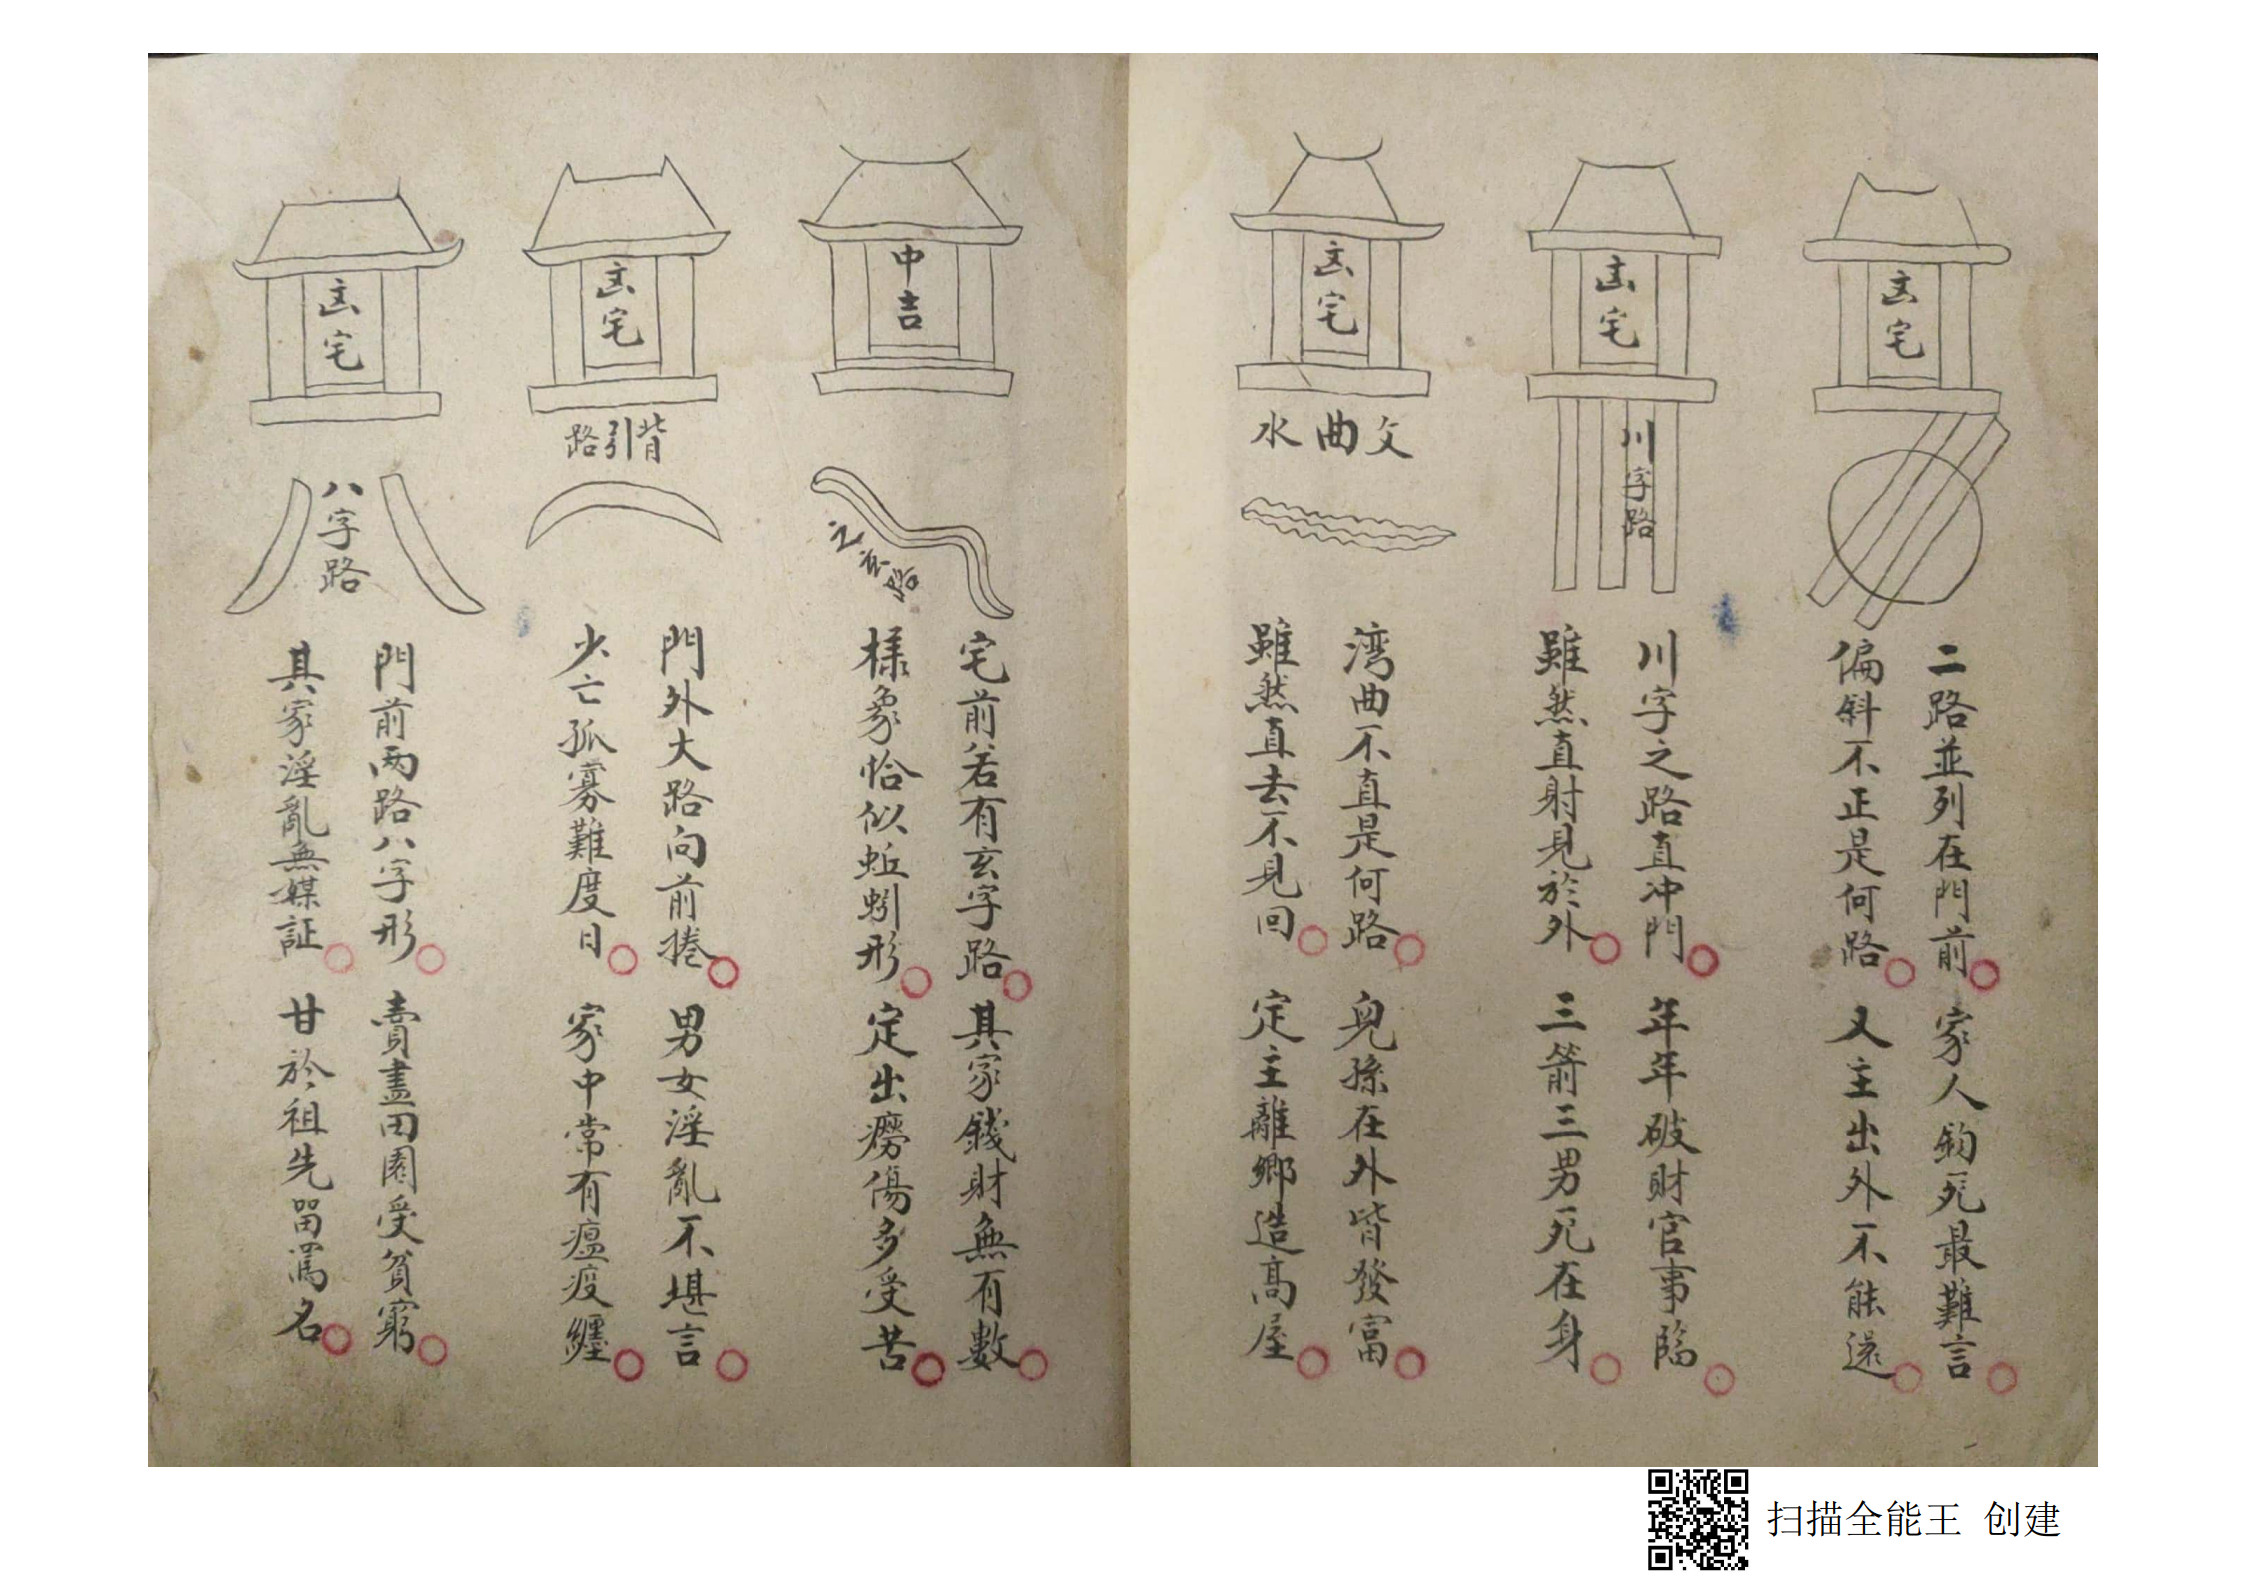 凶宅
二路並列在門前
家人鈎死最難言
偏斜不正是何路
又主出外不能還
凶宅
川字路
川字之路直冲門
年年破財官事臨
雖然直射見於外
三箭三男死在身
凶宅
文曲水
湾曲不直是何路
兒孫在外皆發富
雖然直去不見回
定主離鄉造高屋
中吉
之玄路
宅前若有玄字路
其家錢財無有數
樣象恰似蚯蚓形
定出癆傷多受苦
凶宅
背引路
門外大路向前捲
男女淫亂不堪言
少亡孤寡難度日
家中常有瘟疫纏
凶宅
八字路
門前两路八字形
賣盡田園受貧窮
其家淫亂無媒証
甘於祖先留罵名
扫描全能王 创建